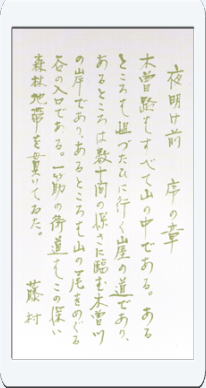 夜明け前 序の章
木曾路はすべて山の中である。ある
ところは岨づたひに行く山屋の道であり、
あるところは数十間の深さに臨む木曽川
の岸であり、あるところは山の尾をめぐる
谷の入口である。一筋の街道はこの深い
森林地帯を貫いてゐた。
藤村